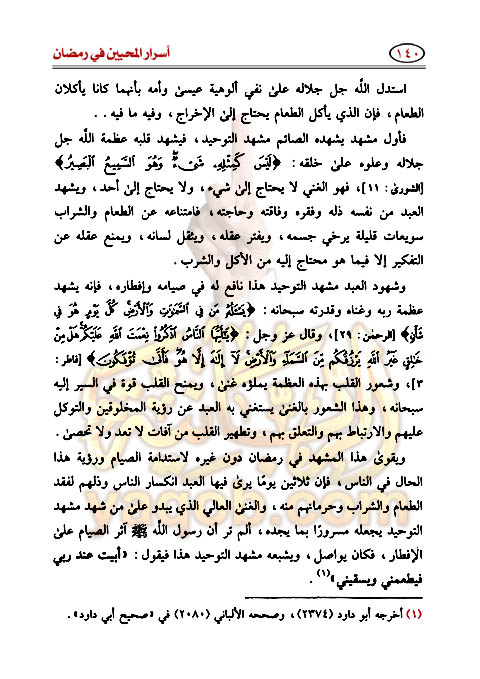 ١٤٠ أسرار المحبين في رمضان
استدل اللَّه جل جلاله علىٰ نفي ألوهية عيسىٰ وأمه بأنهما كانا يأكلان
الطعام، فإن الذي يأكل الطعام يحتاج إلىٰ الإخراج، وفيه ما فيه..
فأول مشهد يشهده الصائم مشهد التوحيد، فيشهد قلبه عظمة اللَّه جل
جلاله وعلوه علىٰ خلقه: ﴿لَيْسَ كَمِثْلِهِۦ شَىْءٌ وَهُوَ ٱلسَّمِيعُ ٱلْبَصِيرُ﴾
[الشورىٰ: ١١]، فهو الغني لا يحتاج إلىٰ شيء، ولا يحتاج إلىٰ أحد، ويشهد
العبد من نفسه ذله وفقره وفاقته وحاجته، فامتناعه عن الطعام والشراب
سويعات قليلة يرخي جسمه، ويفتر عقله، ويثقل لسانه، ويمنع عقله عن
التفكير إلا فيما هو محتاج إليه من الأكل والشرب.
وشهود العبد مشهد التوحيد هذا نافع له في صيامه وإفطاره، فإنه يشهد
عظمة ربه وغناه وقدرته سبحانه: ﴿يَسْـَٔلُهُۥ مَن فِى ٱلسَّمَـٰوَٰتِ وَٱلْأَرْضِ كُلَّ يَوْمٍ هُوَ فِى
شَأْنٍ﴾ [الرحمٰن: ٢٩]، وقال عز وجل: ﴿يَـٰٓأَيُّهَا ٱلنَّاسُ ٱذْكُرُوا۟ نِعْمَتَ ٱللَّهِ عَلَيْكُمْ هَلْ مِنْ
خَـٰلِقٍ غَيْرُ ٱللَّهِ يَرْزُقُكُم مِّنَ ٱلسَّمَآءِ وَٱلْأَرْضِ لَآ إِلَـٰهَ إِلَّا هُوَ فَأَنَّىٰ تُؤْفَكُونَ﴾ [فاطر:
٣]، وشعور القلب بهذه العظمة يملؤه غنىٰ، ويمنح القلب قوة في السير إليه
سبحانه، وهذا الشعور بالغنىٰ يستغني به العبد عن رؤية المخلوقين والتوكل
عليهم والارتباط بهم والتعلق بهم، وتطهير القلب من آفات لا تعد ولا تحصىٰ.
ويقوىٰ هذا المشهد في رمضان دون غيره لاستدامة الصيام ورؤية هذا
الحال في الناس، فإن ثلاثين يومًا يرىٰ فيها العبد انكسار الناس وذلهم لفقد
الطعام والشراب وحرمانهم منه، والغنىٰ العالي الذي يبدو علىٰ من شهد مشهد
التوحيد يجعله مسرورًا بما يجده، ألم تر أن رسول اللَّه ﷺ آثر الصيام علىٰ
الإفطار، فكان يواصل، ويشبعه مشهد التوحيد هذا فيقول: «أبيت عند ربي
فيطعمني ويسقيني»(١).
(١) أخرجه أبو داود (٢٣٧٤)، وصححه الألباني (٢٠٨٠) في «صحيح أبي داود».
yaqob.com